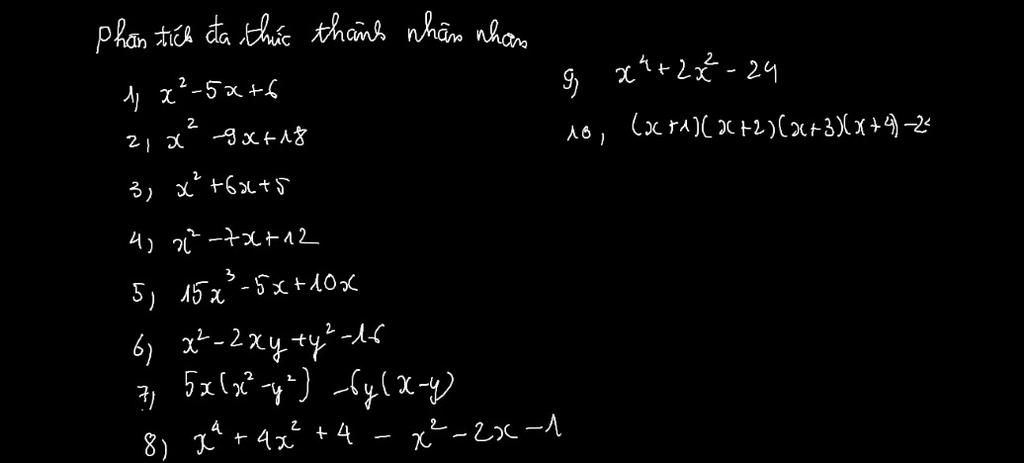 Phân tích đa thức thành nhân nhân
1, x² - 5x + 6
2, x² - 9x + 18
3, x² + 6x + 5
4, x² - 7x + 12
5, 15x³ - 5x + 10x
6, x² - 2xy + y² - 16
7, 5x(x² - y²) - 6y(x - y)
8) x⁴ + 4x² + 4 - x² - 2x - 1
9, x⁴ + 2x² - 24
10, (x+1)(x+2)(x+3)(x+4) - 2